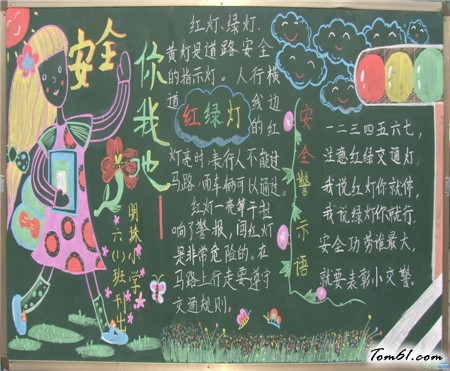 安全
你我他
明珠小学
六(1)班刊
红灯、绿灯、
黄灯是道路安全
的指示灯。人行横
道
线边
的红
红绿灯
灯亮时,表行人不能过
马路,而车辆可以通过。
红灯一亮等于拉
响了警报,闯红灯
是非常危险的。在
马路上行走要遵守
交通规则。
安全警示语
一二三四五六七,
注意红绿交通灯,
我说红灯你就停,
我说绿灯你就行,
安全功劳谁最大,
就要表彰小交警。
Tom61.com